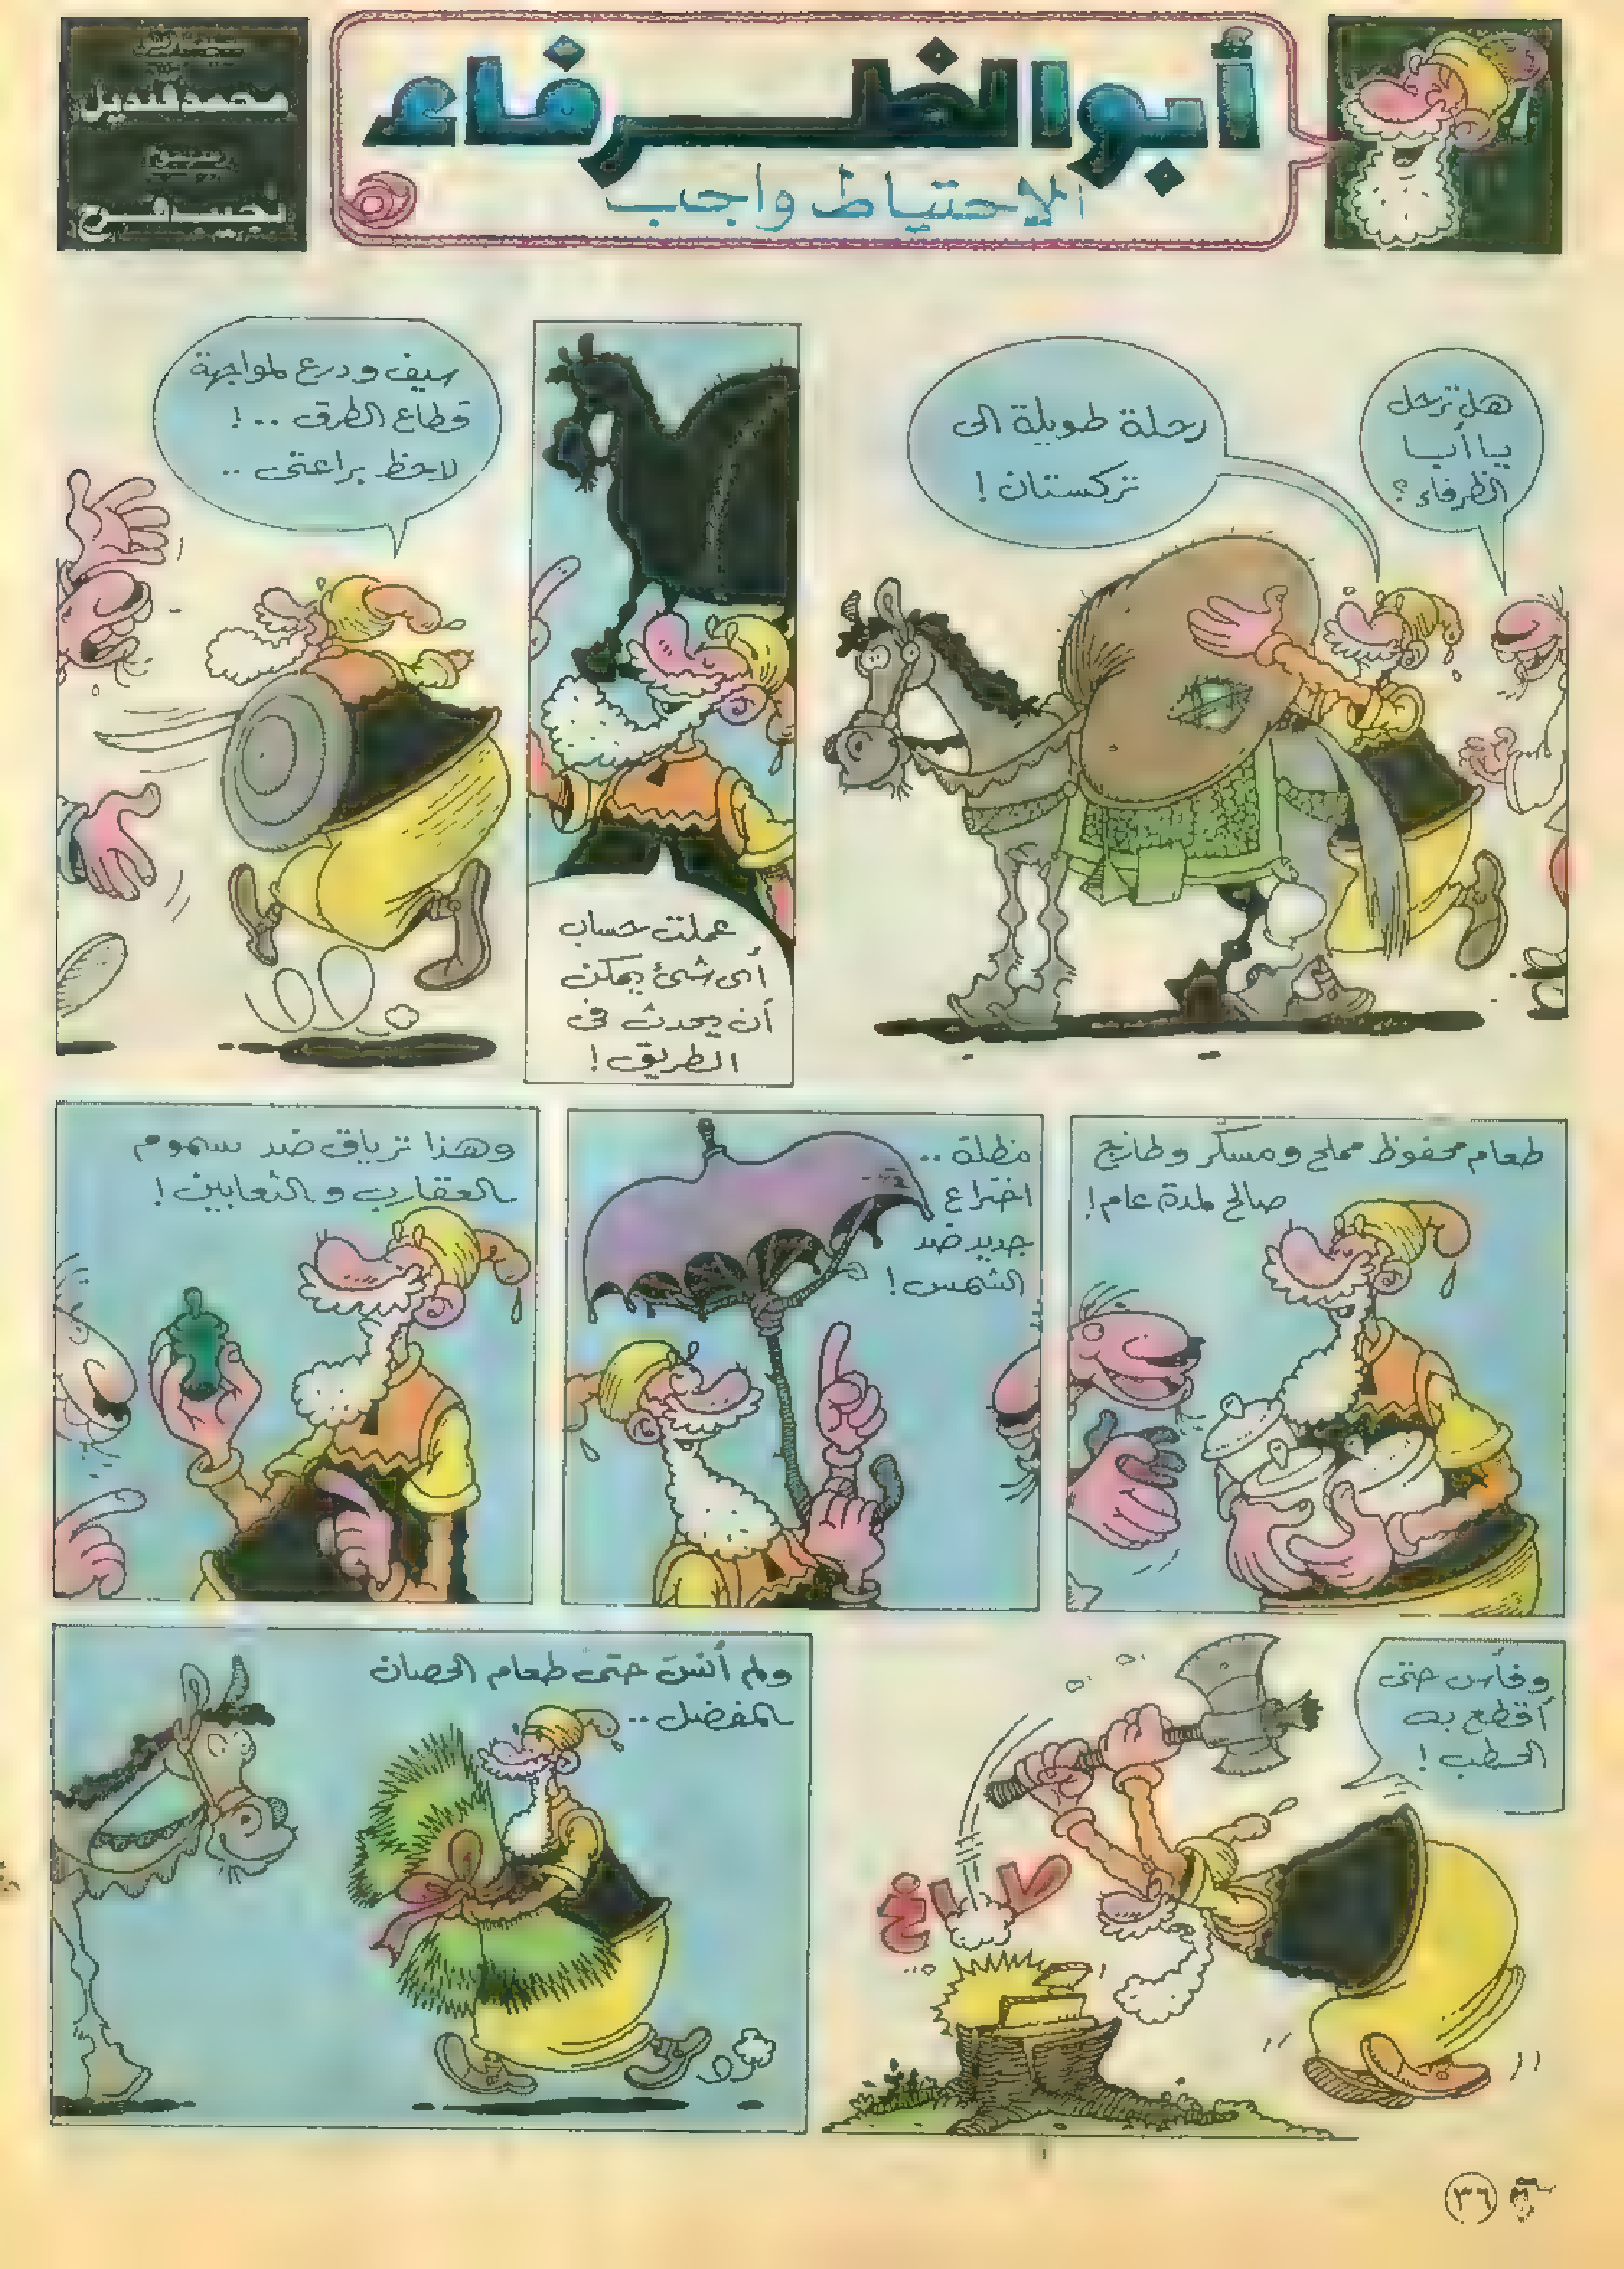 أبو الظرفاء
الإحتياط واجب
محمد قنديل
نجيب فرح
هل ترحل
يا أبا
الظرفاء؟
رحلة طويلة الى
تركستان!
عملت حساب
أى شئ يمكن
أن يحدث فى
الطريق!
سيف ودرع لمواجهة
قطاع الطرق ..!
لاحظ براعتى ..
طعام محفوظ مملح ومسكّر وطازج
صالح لمدة عام!
مظلة ..
اختراع
جديد ضد
الشمس!
وهذا ترياق ضد سموم
العقارب والثعابين!
وفأس حتى
أقطع به
الحطب!
طاخ
ولم أنسَ حتى طعام الحصان
المفضل ..
٣٦